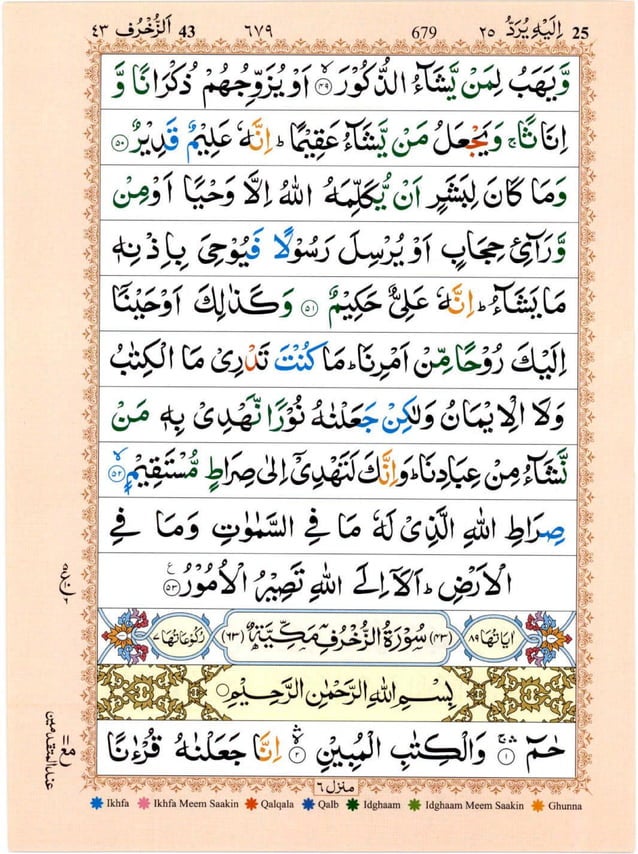 اَلزُّخْرُف ٤٣ 43 ٦٧٩ 679 اِلَيْهِ يُرَدُّ ٢٥ 25
وَّيَهَبُ لِمَنْ يَّشَآءُ الذُّكُوْرَ ۙ﴿۴۹﴾ اَوْ يُزَوِّجُهُمْ ذُكْرَانًا وَّ
اِنَاثًا ۚ وَيَجْعَلُ مَنْ يَّشَآءُ عَقِيْمًا ؕ اِنَّهٗ عَلِيْمٌ قَدِيْرٌ ﴿۵۰﴾
وَمَا كَانَ لِبَشَرٍ اَنْ يُّكَلِّمَهُ اللّٰهُ اِلَّا وَحْيًا اَوْ مِنْ
وَّرَآئِ حِجَابٍ اَوْ يُرْسِلَ رَسُوْلًا فَيُوْحِيَ بِاِذْنِهٖ
مَا يَشَآءُ ؕ اِنَّهٗ عَلِيٌّ حَكِيْمٌ ﴿۵۱﴾ وَكَذٰلِكَ اَوْحَيْنَاۤ
اِلَيْكَ رُوْحًا مِّنْ اَمْرِنَا ؕ مَا كُنْتَ تَدْرِيْ مَا الْكِتٰبُ
وَلَا الْاِيْمَانُ وَلٰكِنْ جَعَلْنٰهُ نُوْرًا نَّهْدِيْ بِهٖ مَنْ
نَّشَآءُ مِنْ عِبَادِنَا ؕ وَاِنَّكَ لَتَهْدِيْۤ اِلٰى صِرَاطٍ مُّسْتَقِيْمٍ ۙ﴿۵۲﴾
صِرَاطِ اللّٰهِ الَّذِيْ لَهٗ مَا فِي السَّمٰوٰتِ وَمَا فِي
الْاَرْضِ ؕ اَلَاۤ اِلَى اللّٰهِ تَصِيْرُ الْاُمُوْرُ ﴿۵۳﴾
اٰيَاتُهَا ٨٩ (٤٣) سُوْرَةُ الزُّخْرُفِ مَكِّيَّةٌ (٦٣) رُكُوْعَاتُهَا ٧
بِسْمِ اللّٰهِ الرَّحْمٰنِ الرَّحِيْمِ
حٰمٓ ۚ﴿۱﴾ وَالْكِتٰبِ الْمُبِيْنِ ۙ﴿۲﴾ اِنَّا جَعَلْنٰهُ قُرْءٰنًا
عند المتقدمين
منزل ٦
Ikhfa Ikhfa Meem Saakin Qalqala Qalb Idghaam Idghaam Meem Saakin Ghunna